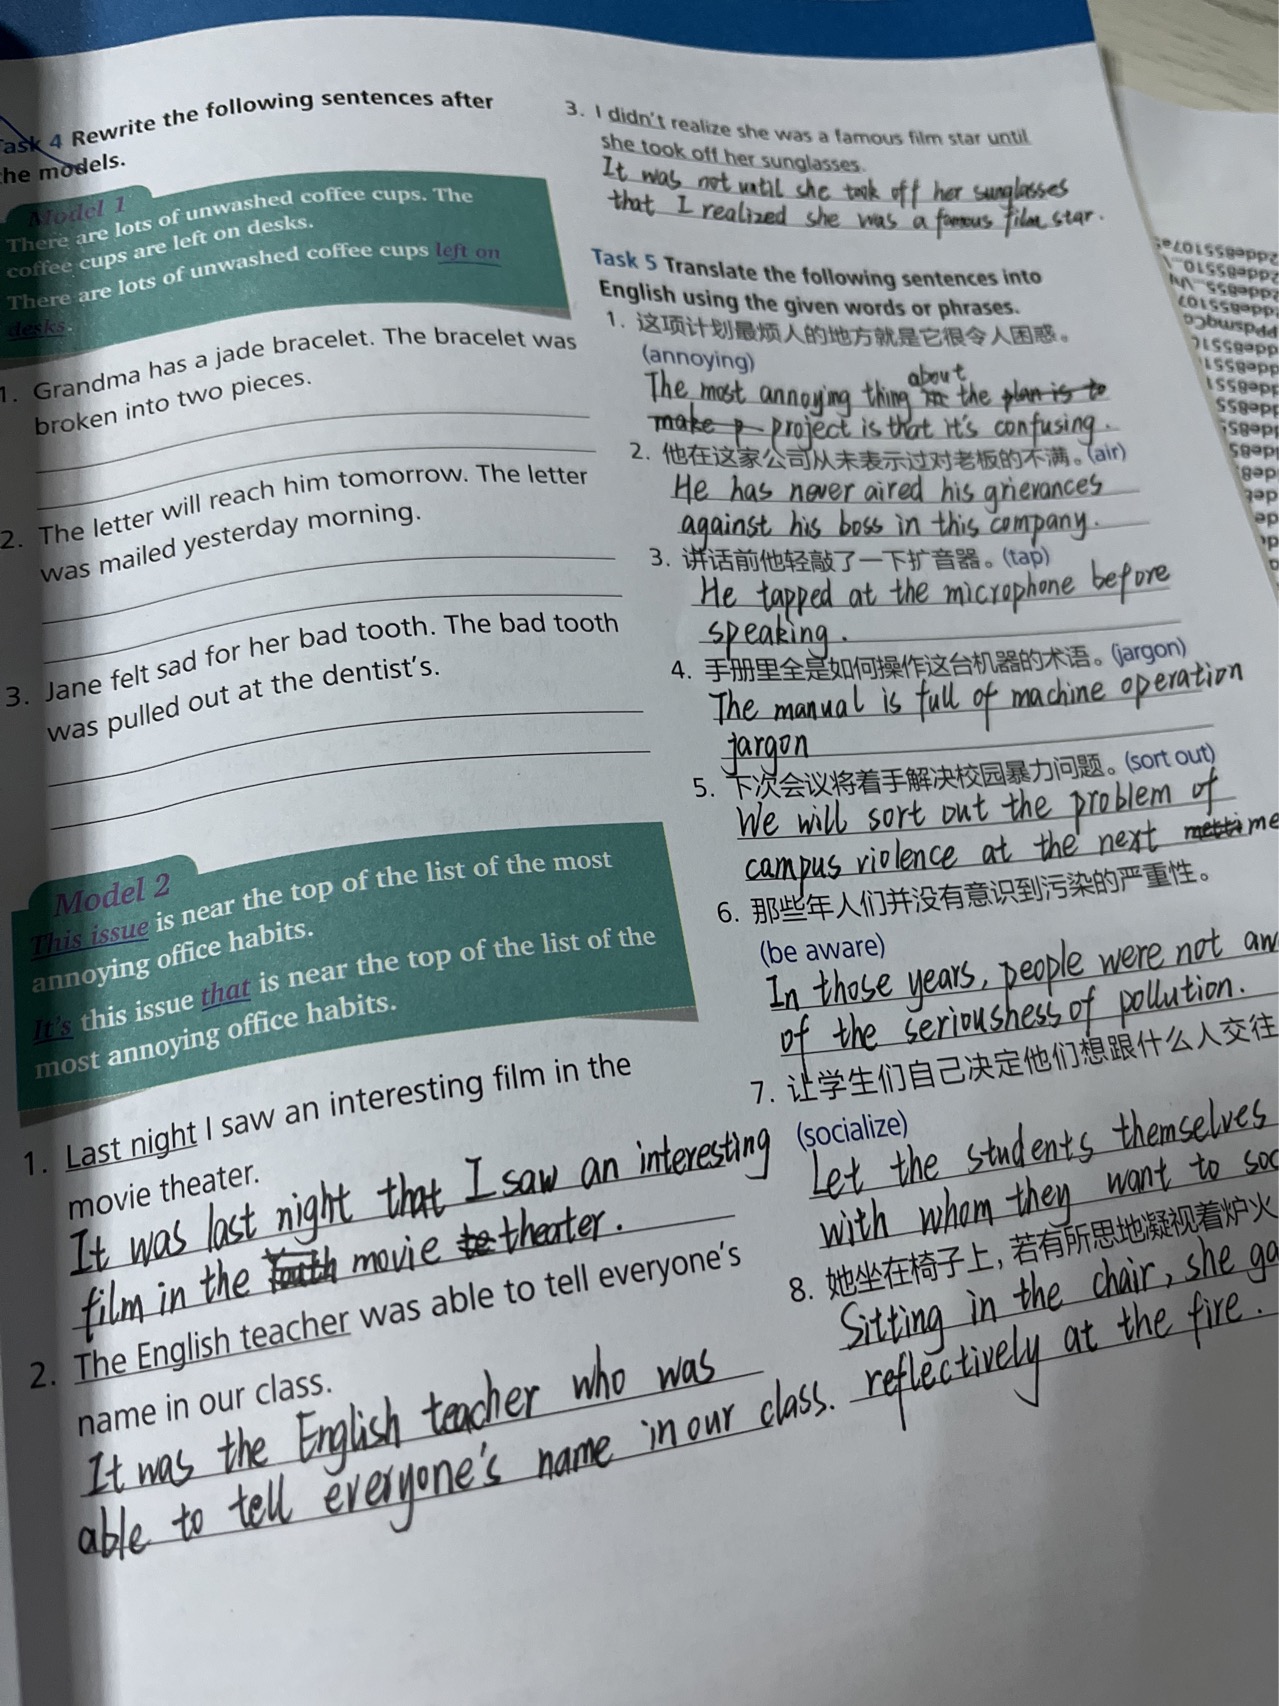 Task 4 Rewrite the following sentences after
the models.
Model 1
There are lots of unwashed coffee cups. The
coffee cups are left on desks.
There are lots of unwashed coffee cups left on
desks.
1. Grandma has a jade bracelet. The bracelet was
broken into two pieces.
2. The letter will reach him tomorrow. The letter
was mailed yesterday morning.
3. Jane felt sad for her bad tooth. The bad tooth
was pulled out at the dentist's.
Model 2
This issue is near the top of the list of the most
annoying office habits.
It's this issue that is near the top of the list of the
most annoying office habits.
1. Last night I saw an interesting film in the
movie theater.
It was last night that I saw an interesting
film in the movie theater.
2. The English teacher was able to tell everyone's
name in our class.
It was the English teacher who was
able to tell everyone's name in our class.
3. I didn't realize she was a famous film star until
she took off her sunglasses.
It was not until she took off her sunglasses
that I realized she was a famous film star.
Task 5 Translate the following sentences into
English using the given words or phrases.
1. 这项计划最烦人的地方就是它很令人困惑。
(annoying)
about
The most annoying thing the plan is to
make p project is that it's confusing.
2. 他在这家公司从未表示过对老板的不满。(air)
He has never aired his grievances
against his boss in this company.
3. 讲话前他轻敲了一下扩音器。(tap)
He tapped at the microphone before
speaking.
4. 手册里全是如何操作这台机器的术语。(jargon)
The manual is full of machine operation
jargon
5. 下次会议将着手解决校园暴力问题。(sort out)
We will sort out the problem of
campus violence at the next me
6. 那些年人们并没有意识到污染的严重性。
(be aware)
In those years, people were not aw
of the seriousness of pollution.
7. 让学生们自己决定他们想跟什么人交往
(socialize)
Let the students themselves
with whom they want to soc
8. 她坐在椅子上，若有所思地凝视着炉火
Sitting in the chair, she ga
reflectively at the fire.